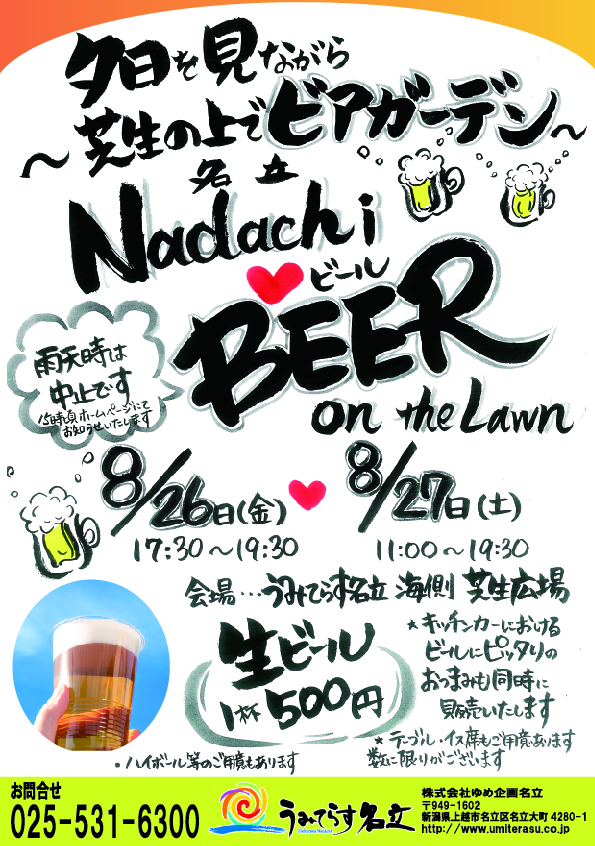 夕日を見ながら
～芝生の上でビアガーデン～
名立
Nadachi
ビール
BEER
on the Lawn
雨天時は
中止です
15時頃ホームページにて
お知らせいたします
8/26日(金)
8/27日(土)
17:30～19:30
11:00～19:30
会場…うみてらす名立 海側 芝生広場
生ビール
1杯 500円
★キッチンカーにおける
ビールにピッタリの
おつまみも同時に
販売いたします
★テーブル・イス席もご用意あります
数に限りがございます
・ハイボール等のご用意もあります
お問合せ
025-531-6300
うみてらす名立
Umiterasu Nadachi
株式会社ゆめ企画名立
〒949-1602
新潟県上越市名立区名立大町 4280-1
http://www.umiterasu.co.jp